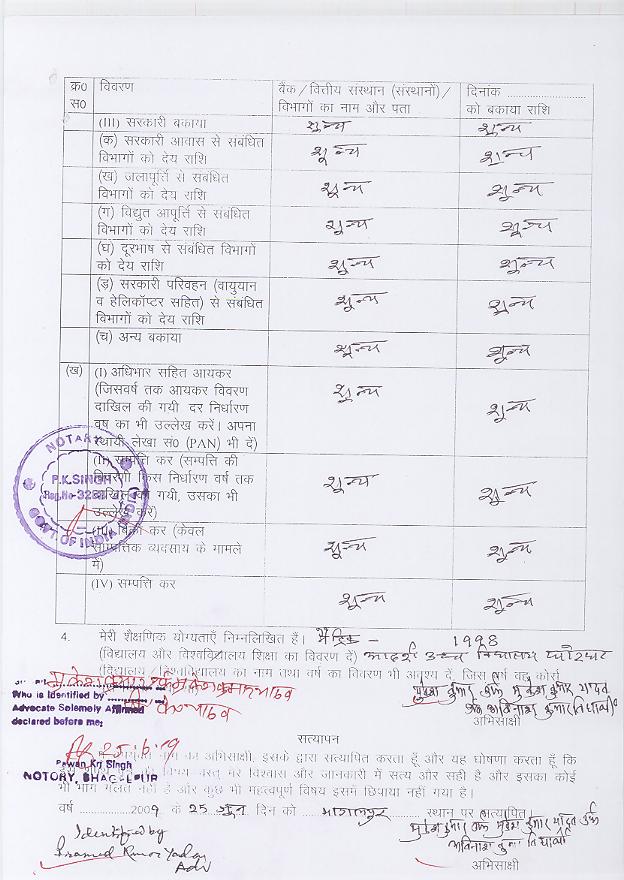 क्र० विवरण बैंक/वित्तीय संस्थान (संस्थानों)/ दिनांक ........................
स० विभागों का नाम और पता को बकाया राशि
(III) सरकारी बकाया शून्य शून्य
(क) सरकारी आवास से संबंधित
विभागों को देय राशि शून्य शून्य
(ख) जलापूर्ति से संबंधित
विभागों को देय राशि शून्य शून्य
(ग) विद्युत आपूर्त्ति से संबंधित
विभागों को देय राशि शून्य शून्य
(घ) दूरभाष से संबंधित विभागों
को देय राशि शून्य शून्य
(ड़) सरकारी परिवहन (वायुयान
व हेलिकॉप्टर सहित) से संबंधित
विभागों को देय राशि शून्य शून्य
(च) अन्य बकाया शून्य शून्य
(ख) (I) अधिभार सहित आयकर
(जिसवर्ष तक आयकर विवरण
दाखिल की गयी दर निर्धारण
वर्ष का भी उल्लेख करें। अपना
स्थायी लेखा सं० (PAN) भी दें) शून्य शून्य
(II) सम्पत्ति कर (सम्पत्ति की
विवरणी किस निर्धारण वर्ष तक
दाखिल की गयी, उसका भी
उल्लेख करें) शून्य शून्य
(III) बिक्री कर (केवल
व्यवसाय के मामले
में) शून्य शून्य
(IV) सम्पत्ति कर शून्य शून्य
NOTARY
P.K.SINGH
Reg.No-3252
GOVT.OF INDIA
4. मेरी शैक्षणिक योग्यताएँ निम्नलिखित हैं। मैट्रिक - 1998
(विद्यालय और विश्वविद्यालय शिक्षा का विवरण दें) आदर्श उच्च विद्यालय
(विद्यालय/विश्वविद्यालय का नाम तथा वर्ष का विवरण भी अवश्य दें, जिस वर्ष वह कोर्स
Who is Identified by
Advocate Solemnly Affirmed
declared before me,
मुकेश कुमार उर्फ मुकेश कुमार यादव
उर्फ अविनाश कुमार विद्यार्थी
अभिसाक्षी
सत्यापन
25.6.09
Pawan Kr. Singh
NOTARY, BHAGALPUR
नाम का अभिसाक्षी, इसके द्वारा सत्यापित करता हूँ और यह घोषणा करता हूँ कि
विषय वस्तु मेरे विश्वास और जानकारी में सत्य और सही है और इसका कोई
भी भाग गलत नहीं है और कुछ भी महत्वपूर्ण विषय इसमें छिपाया नहीं गया है।
वर्ष ..........2009 के 25 जून दिन को ..... भागलपुर ............ स्थान पर सत्यापित
मुकेश कुमार उर्फ मुकेश कुमार यादव उर्फ
अविनाश कुमार विद्यार्थी
अभिसाक्षी
Identified by
Pramod Kumar Yadav
Adv